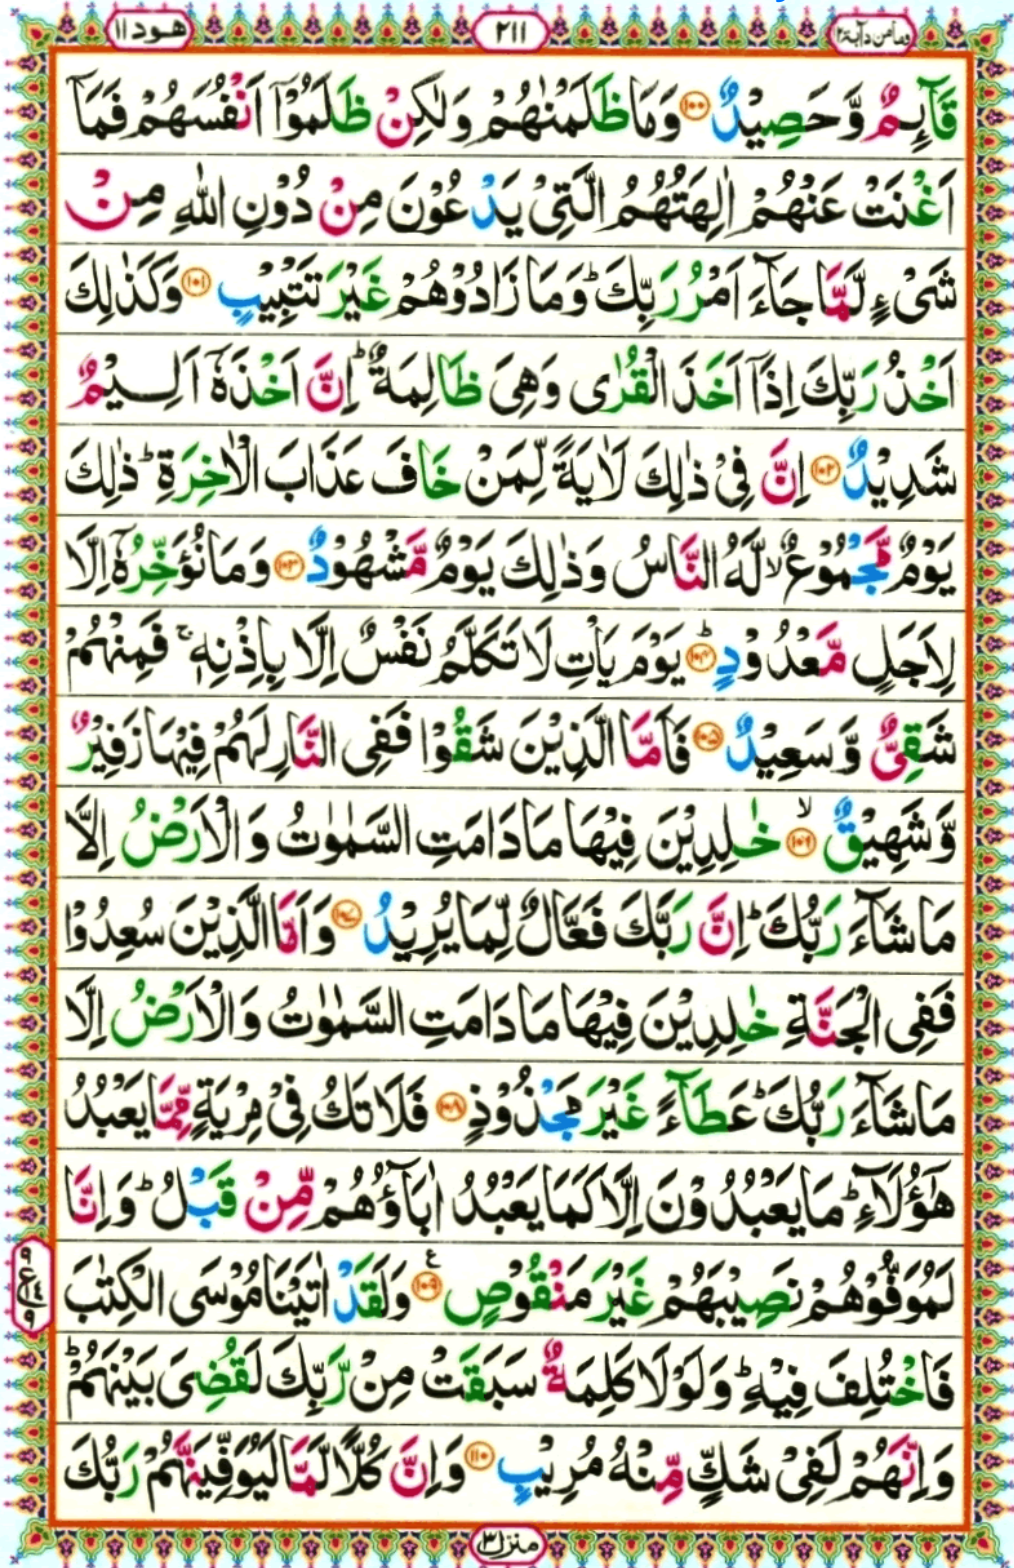 وما من دآبة ١٢
٢١١
هود ١١
قَآئِمٌ وَّحَصِيْدٌ ﴿۱۰۰﴾ وَمَا ظَلَمْنٰهُمْ وَلٰكِنْ ظَلَمُوْۤا اَنْفُسَهُمْ فَمَاۤ
اَغْنَتْ عَنْهُمْ اٰلِهَتُهُمُ الَّتِیْ يَدْعُوْنَ مِنْ دُوْنِ اللّٰهِ مِنْ
شَیْءٍ لَّمَّا جَآءَ اَمْرُ رَبِّكَ ؕ وَمَا زَادُوْهُمْ غَيْرَ تَتْبِيْبٍ ﴿۱۰۱﴾ وَكَذٰلِكَ
اَخْذُ رَبِّكَ اِذَاۤ اَخَذَ الْقُرٰى وَهِیَ ظَالِمَةٌ ؕ اِنَّ اَخْذَهٗۤ اَلِيْمٌ
شَدِيْدٌ ﴿۱۰۲﴾ اِنَّ فِیْ ذٰلِكَ لَاٰيَةً لِّمَنْ خَافَ عَذَابَ الْاٰخِرَةِ ؕ ذٰلِكَ
يَوْمٌ مَّجْمُوْعٌ ۙ لَّهُ النَّاسُ وَذٰلِكَ يَوْمٌ مَّشْهُوْدٌ ﴿۱۰۳﴾ وَمَا نُؤَخِّرُهٗۤ اِلَّا
لِاَجَلٍ مَّعْدُوْدٍ ؕ ﴿۱۰۴﴾ يَوْمَ يَاْتِ لَا تَكَلَّمُ نَفْسٌ اِلَّا بِاِذْنِهٖ ۚ فَمِنْهُمْ
شَقِیٌّ وَّسَعِيْدٌ ﴿۱۰۵﴾ فَاَمَّا الَّذِيْنَ شَقُوْا فَفِی النَّارِ لَهُمْ فِيْهَا زَفِيْرٌ
وَّشَهِيْقٌ ۙ ﴿۱۰۶﴾ خٰلِدِيْنَ فِيْهَا مَا دَامَتِ السَّمٰوٰتُ وَالْاَرْضُ اِلَّا
مَا شَآءَ رَبُّكَ ؕ اِنَّ رَبَّكَ فَعَّالٌ لِّمَا يُرِيْدُ ﴿۱۰۷﴾ وَاَمَّا الَّذِيْنَ سُعِدُوْا
فَفِی الْجَنَّةِ خٰلِدِيْنَ فِيْهَا مَا دَامَتِ السَّمٰوٰتُ وَالْاَرْضُ اِلَّا
مَا شَآءَ رَبُّكَ ؕ عَطَآءً غَيْرَ مَجْذُوْذٍ ﴿۱۰۸﴾ فَلَا تَكُ فِیْ مِرْيَةٍ مِّمَّا يَعْبُدُ
هٰۤؤُلَآءِ ؕ مَا يَعْبُدُوْنَ اِلَّا كَمَا يَعْبُدُ اٰبَآؤُهُمْ مِّنْ قَبْلُ ؕ وَاِنَّا
لَمُوَفُّوْهُمْ نَصِيْبَهُمْ غَيْرَ مَنْقُوْصٍ ﴿۱۰۹﴾ ع وَلَقَدْ اٰتَيْنَا مُوْسَى الْكِتٰبَ
فَاخْتُلِفَ فِيْهِ ؕ وَلَوْلَا كَلِمَةٌ سَبَقَتْ مِنْ رَّبِّكَ لَقُضِیَ بَيْنَهُمْ ؕ
وَاِنَّهُمْ لَفِیْ شَكٍّ مِّنْهُ مُرِيْبٍ ﴿۱۱۰﴾ وَاِنَّ كُلًّا لَّمَّا لَيُوَفِّيَنَّهُمْ رَبُّكَ
منزل ٣